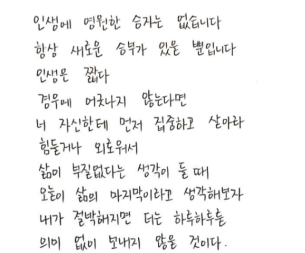 인생에 영원한 승자는 없습니다
항상 새로운 승부가 있을 뿐입니다
인생은 짧다
경우에 어긋나지 않는다면
너 자신한테 먼저 집중하고 살아라
힘들거나 외로워서
삶이 부질없다는 생각이 들 때
오늘이 삶의 마지막이라고 생각해보자
내가 절박해지면 더는 하루하루를
의미 없이 보내지 않을 것이다.